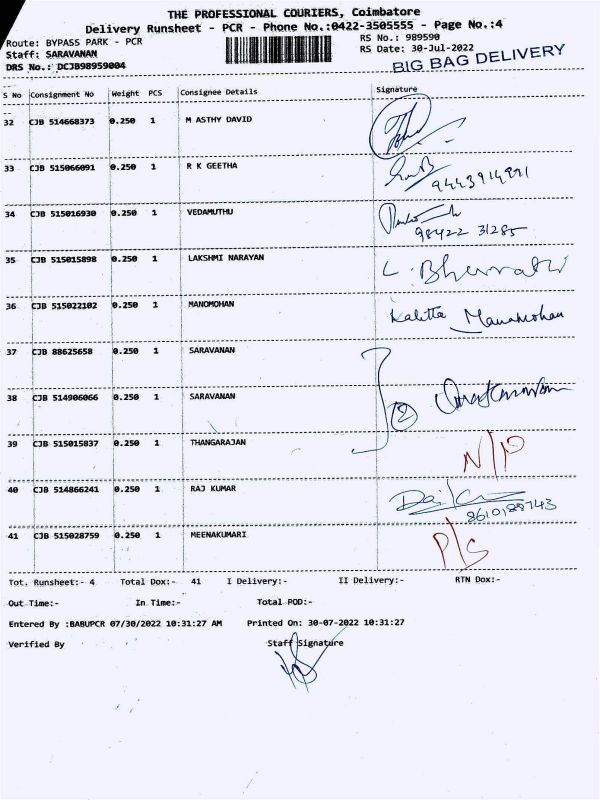 THE PROFESSIONAL COURIERS, Coimbatore
Delivery Runsheet - PCR - Phone No.:0422-3505555 - Page No.:4
Route: BYPASS PARK - PCR
RS No.: 989590
Staff: SARAVANAN
RS Date: 30-Jul-2022
DRS No.: DCJB98959004
BIG BAG DELIVERY
S No Consignment No Weight PCS Consignee Details Signature
32 CJB 514668373 0.250 1 M ASTHY DAVID
33 CJB 515066091 0.250 1 R K GEETHA
9443914991
34 CJB 515016930 0.250 1 VEDAMUTHU
98422 31285
35 CJB 515015898 0.250 1 LAKSHMI NARAYAN L. Bharrathi
36 CJB 515022102 0.250 1 MANOMOHAN Kalitta Manamohan
37 CJB 88625658 0.250 1 SARAVANAN
38 CJB 514906066 0.250 1 SARAVANAN 2
39 CJB 515015837 0.250 1 THANGARAJAN N/P
40 CJB 514866241 0.250 1 RAJ KUMAR
8610188743
41 CJB 515028759 0.250 1 MEENAKUMARI P/S
Tot. Runsheet:- 4 Total Dox:- 41 I Delivery:- II Delivery:- RTN Dox:-
Out Time:- In Time:- Total POD:-
Entered By :BABUPCR 07/30/2022 10:31:27 AM Printed On: 30-07-2022 10:31:27
Verified By Staff Signature